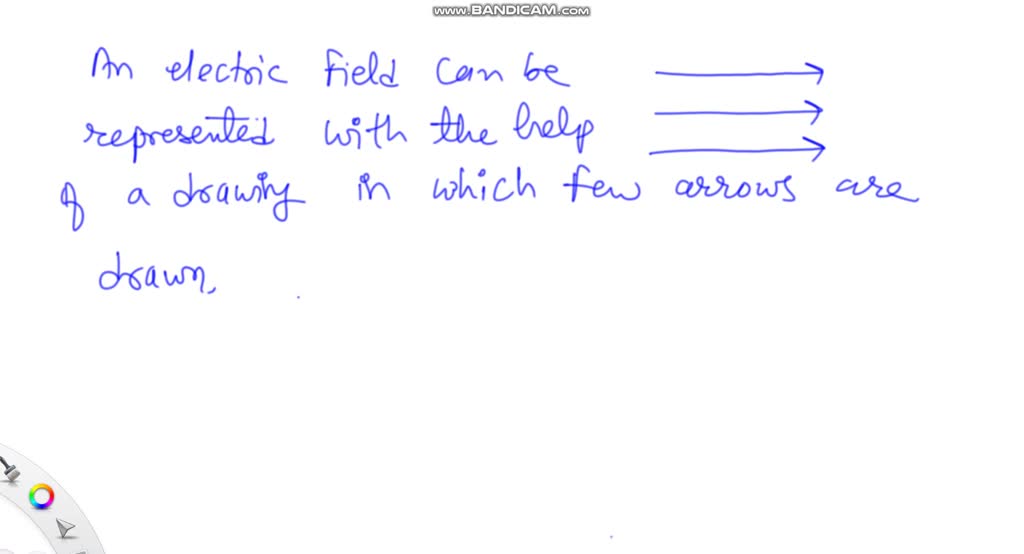 www.BANDICAM.com
An electric field can be
represented with the help
of a drawing in which few arrows are
drawn,